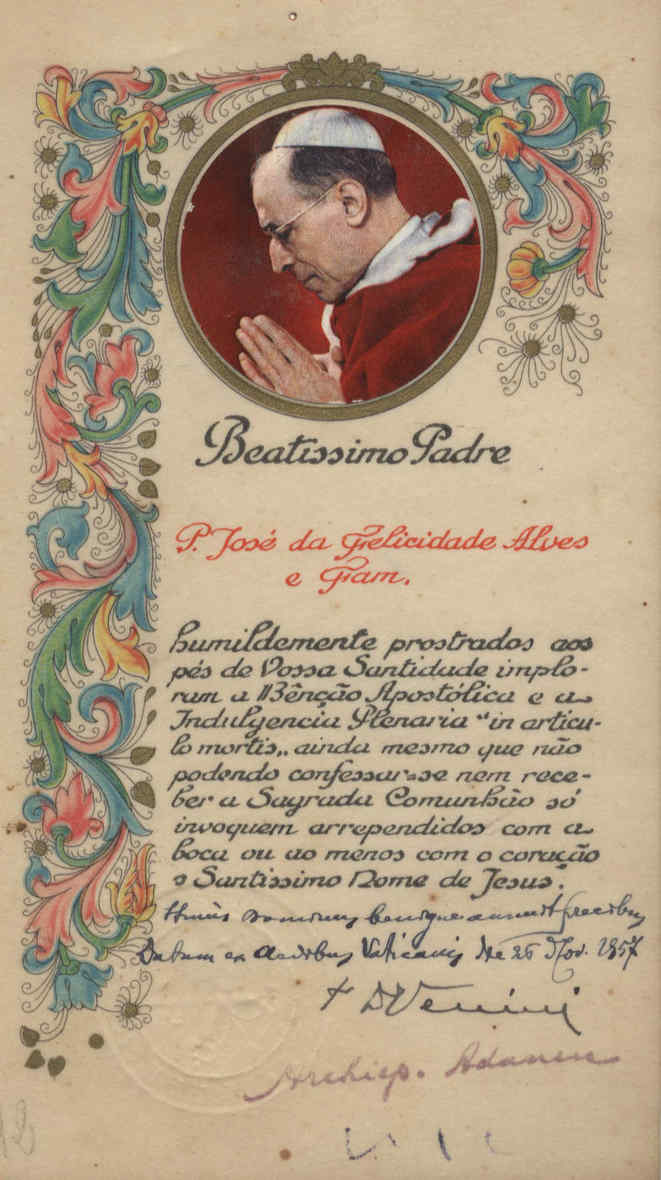 Beatissimo Padre
P. José da Felicidade Alves
e Fam.
humildemente prostrados aos
pés de Vossa Santidade implo-
ram a Bênção Apostólica e a
Indulgencia Plenaria "in articu-
lo mortis„ ainda mesmo que não
podendo confessar-se nem rece-
ber a Sagrada Comunhão só
invoquem arrependidos com a
boca ou ao menos com o coração
o Santissimo Nome de Jesus.
benigne annuit precibus
Datum ex Aedibus Vaticanis die 26 Nov. 1957
† D Venini
Archiep. Adanen